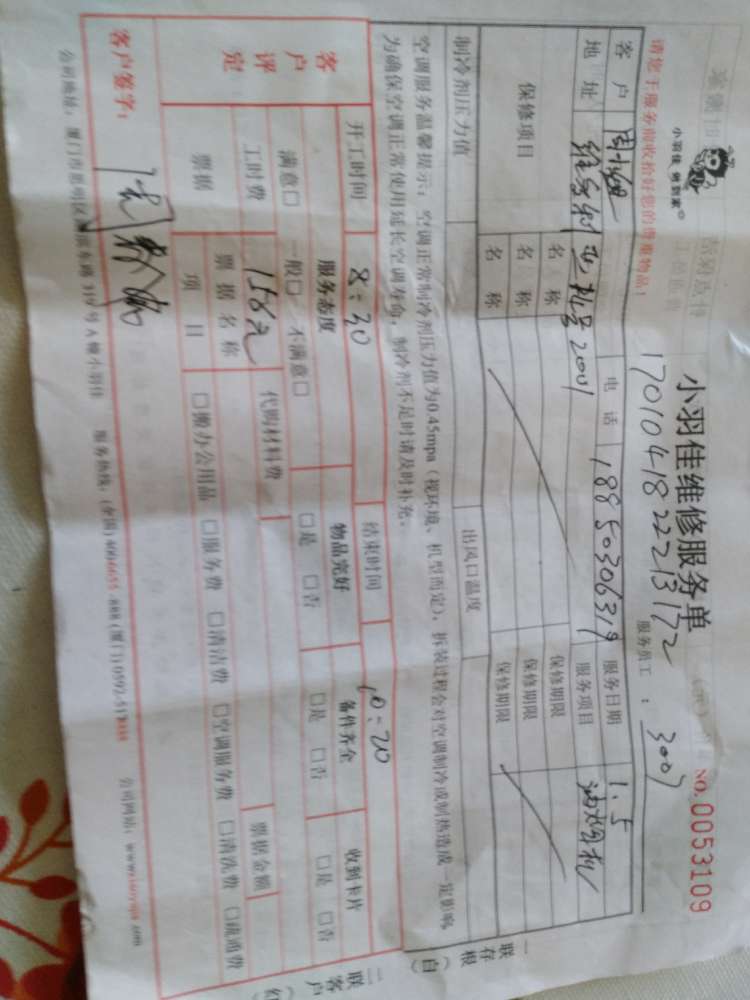 小羽佳 爱到家
小羽佳维修服务单
NO.0053109
17010418222213172
请您于服务前收拾好您的贵重物品!
服务员工 : 3007
客户 电话 18850306319 服务日期 1.5
地址 维多利亚 2001 服务项目 油烟机
保修项目 名称 保修期限
名称 保修期限
名称 保修期限
制冷剂压力值 出风口温度
空调服务温馨提示:空调正常制冷剂压力值为0.45mpa(视环境、机型而定),拆装过程会对空调制冷或制热造成一定影响,
为确保空调正常使用延长空调寿命,制冷剂不足时请及时补充。
开工时间 8:20 结束时间 10:20
客户评定 服务态度 物品完好 备件齐全 收到卡片
满意□ 一般□ 不满意□ □是 □否 □是 □否 □是 □否
工时费 158元 代购材料费 票据金额
票据 票据名称
项目 □搬办公用品 □服务费 □清洁费 □空调服务费 □清洗费 □疏通费
客户签字:
公司地址:厦门市思明区 东路319号A幢小羽佳 服务热线:(全国) (厦门)0592- 公司网站:
一联存根(白)
二联客户(红)